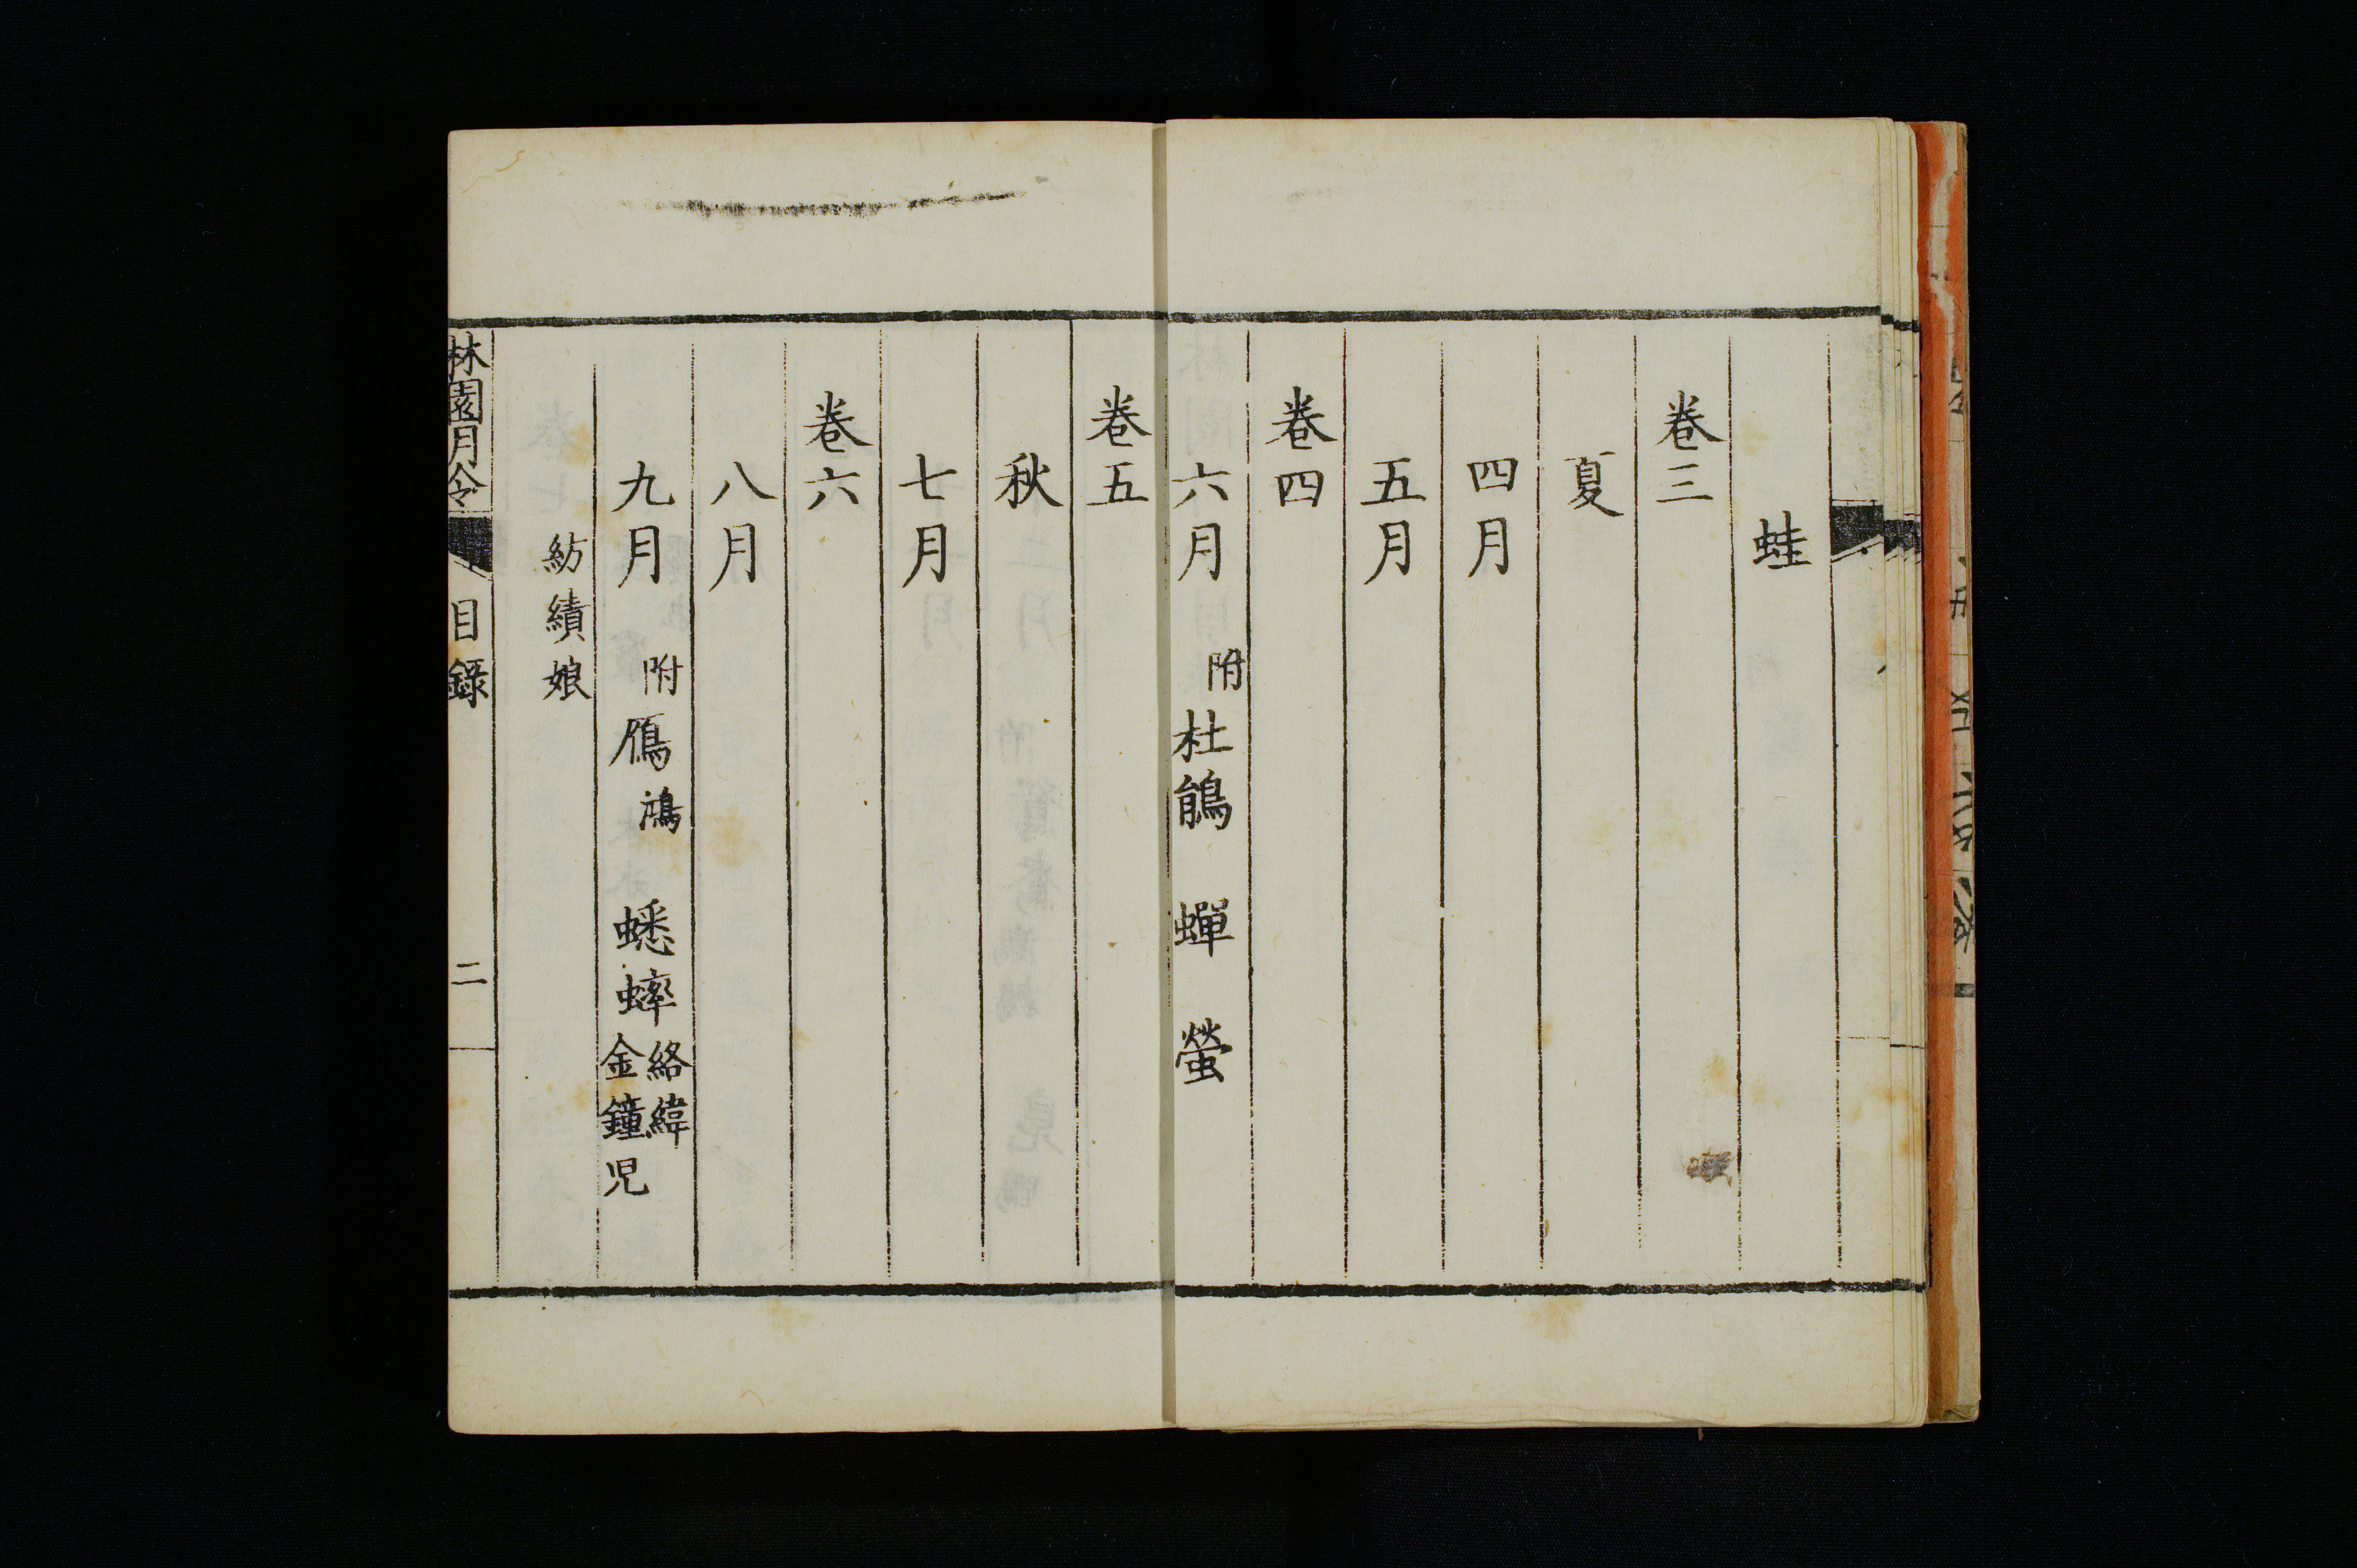 蛙
卷三
夏
四月
五月
卷四
六月 附 杜鵑 蟬 螢
卷五
秋
七月
卷六
八月
九月 附 鴈 鴻 蟋蟀 絡緯 金鐘児
紡績娘
林園月令 目錄 二